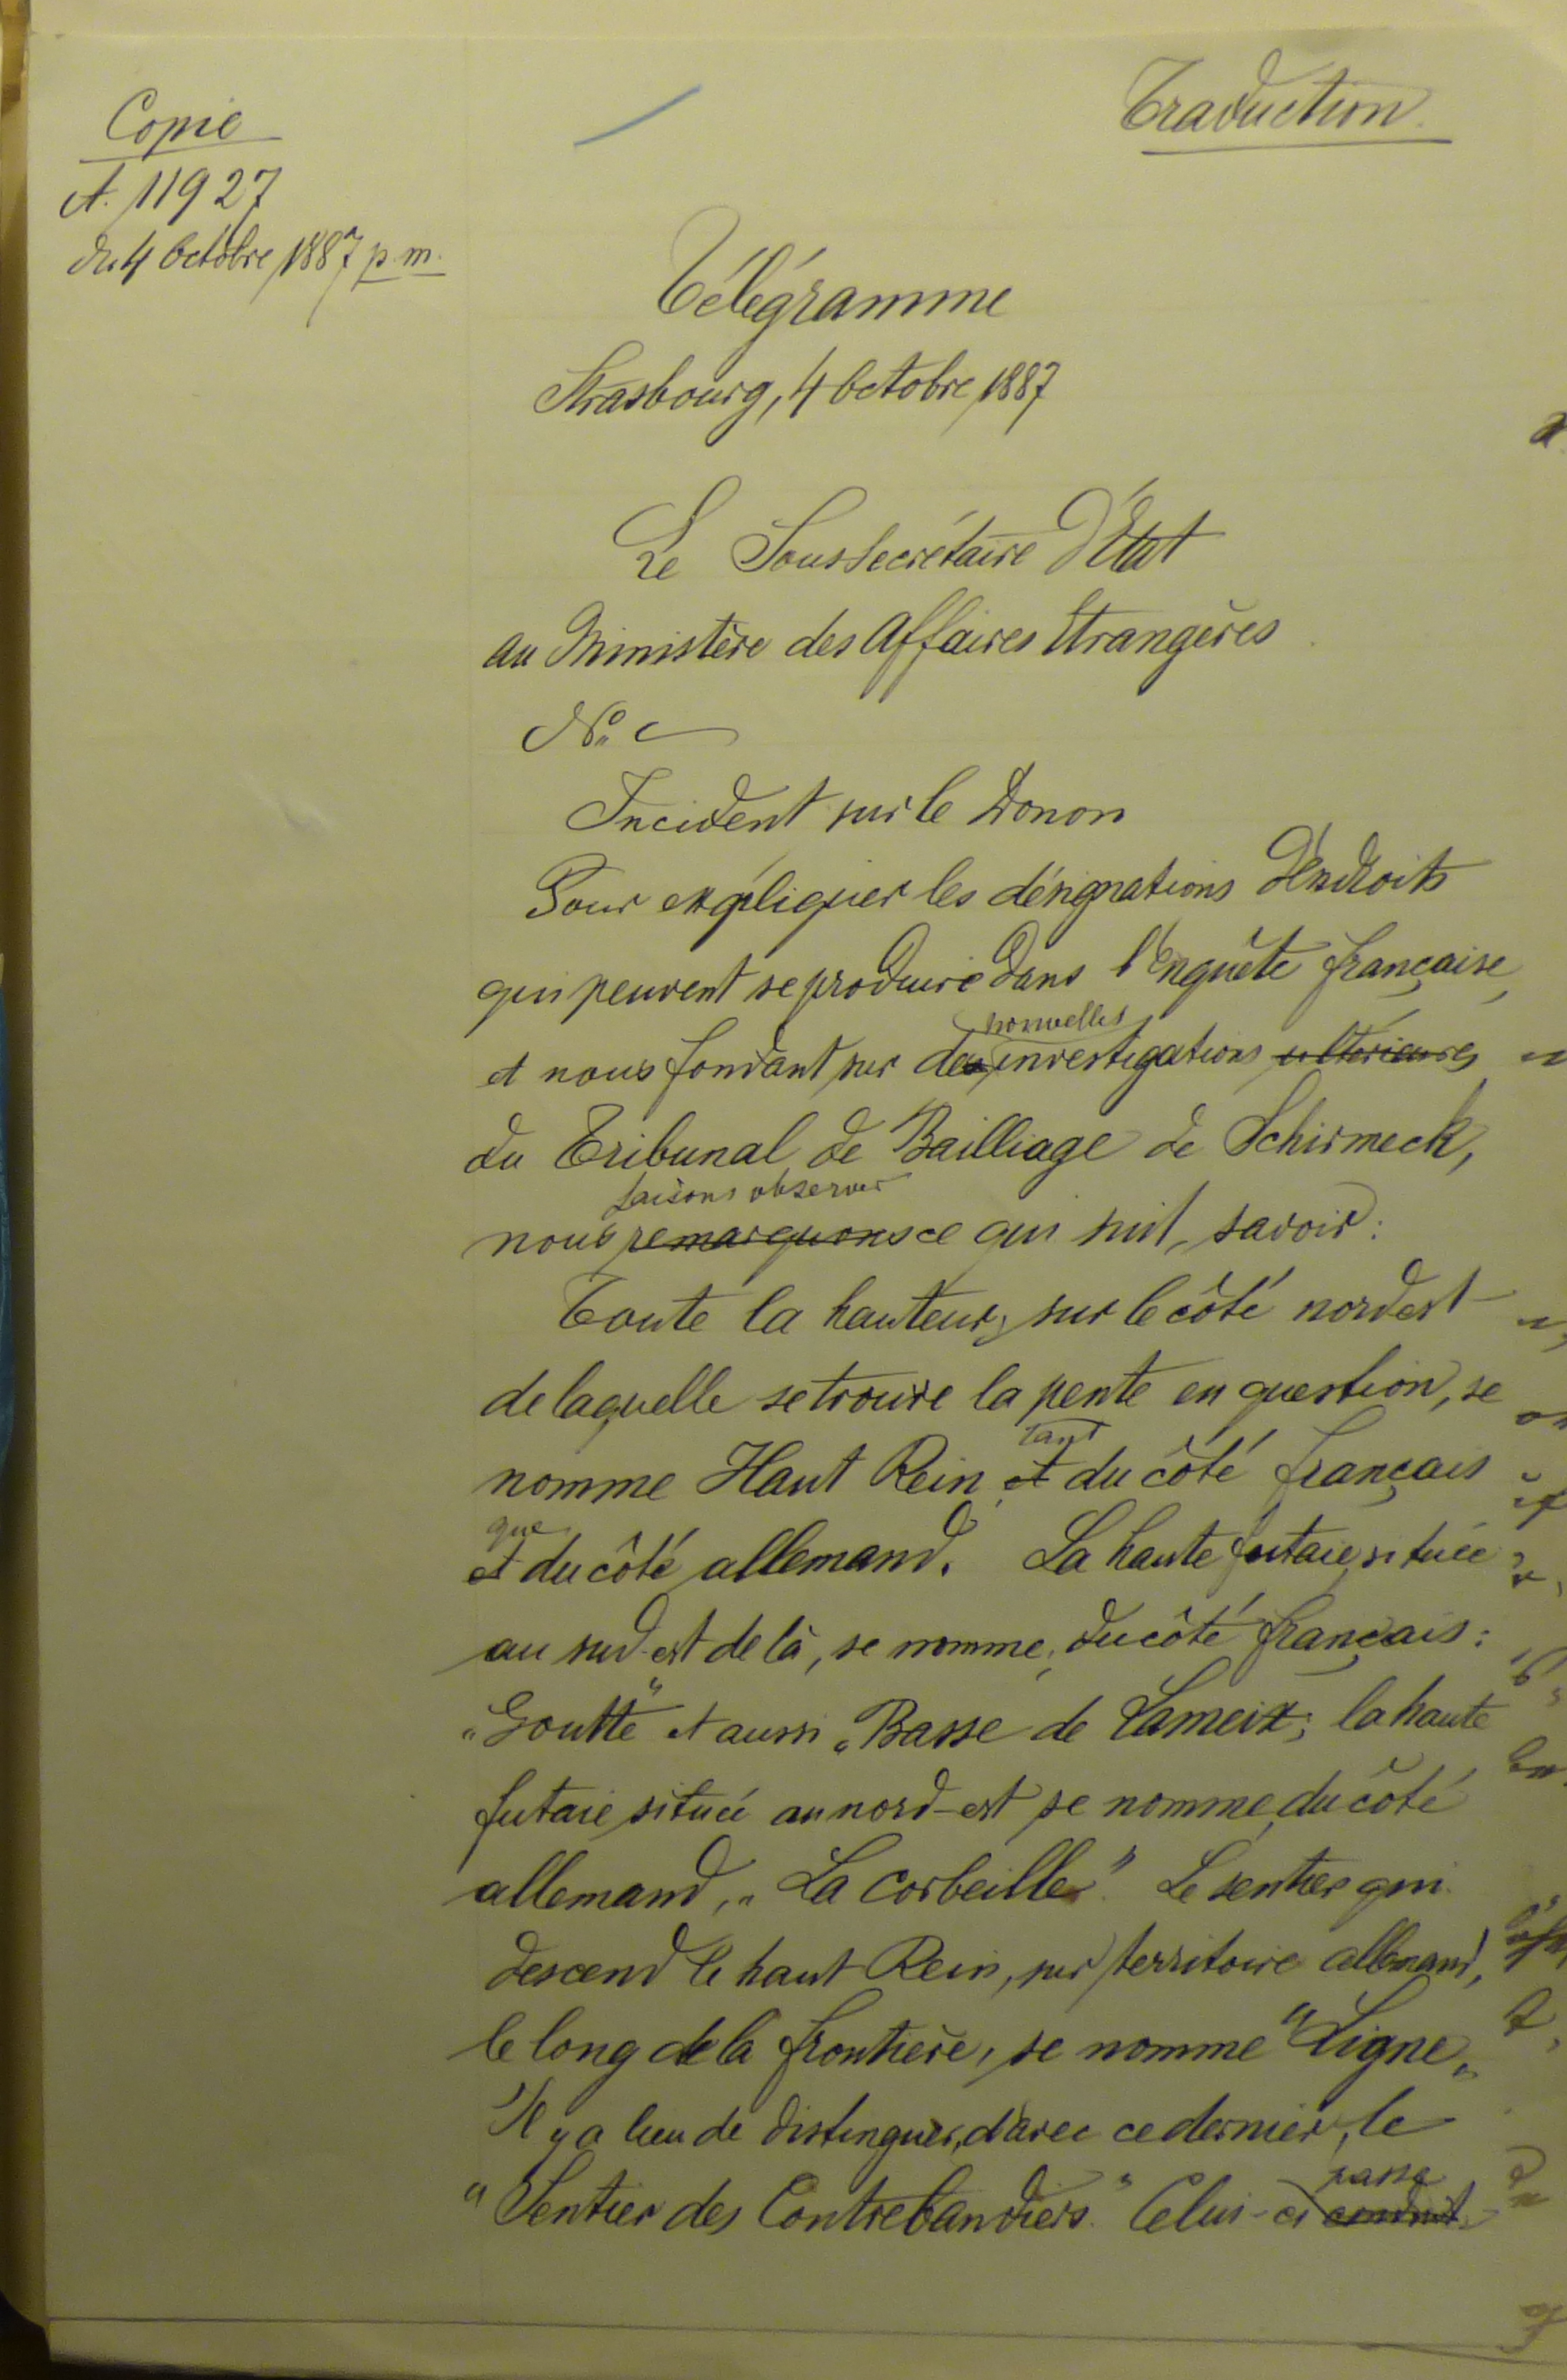 Copie
A. 11927
du 4 Octobre 1887 p.m.
Traduction
Télégramme
Strasbourg, 4 Octobre 1887
Le Soussecrétaire d'Etat
au Ministère des Affaires Etrangères
No.
Incident sur le Donon
Pour expliquer les désignations d'endroits
qui peuvent se produire dans l'enquête française,
et nous fondant sur de nouvelles investigations ultérieures
du Tribunal de Bailliage de Schirmeck,
nous faisons observer remarquons ce qui suit, savoir:
Toute la hauteur, sur le côté nord est
de laquelle se trouve la pente en question, se
nomme Haut Rein, tant et du côté français
que et du côté allemand. La haute futaie, située
au sud-est de là, se nomme, du côté français:
„Goutte" et aussi „Basse de Lameix; la haute
futaie située au nord-est se nomme, du côté
allemand, „La Corbeille". Le sentier qui
descend le haut Rein, sur territoire allemand,
le long de la frontière, se nomme "Ligne„
Il y a lieu de distinguer, d'avec ce dernier, le
"Sentier des Contrebandiers." Celui-ci passe conduit